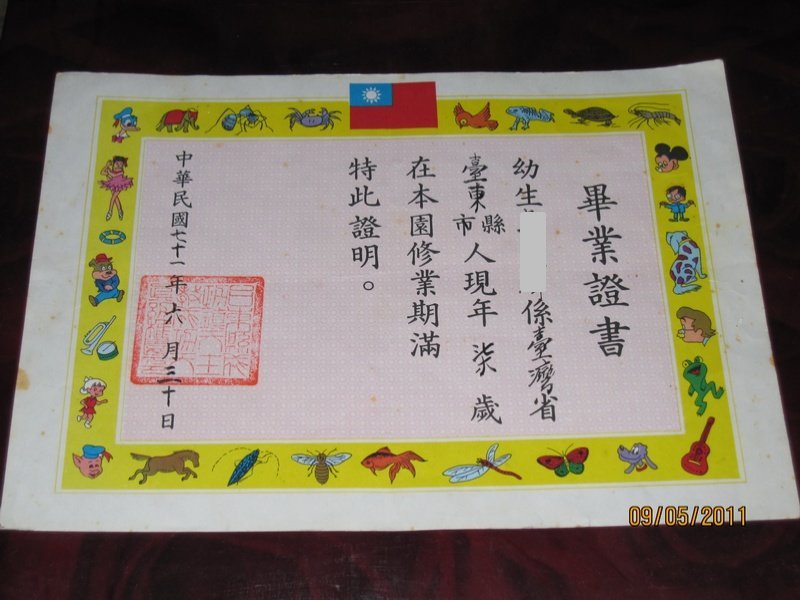 畢業證書
幼生 係臺灣省
臺東縣市人現年柒歲
在本園修業期滿
特此證明。
中華民國七十一年六月三十日
09/05/2011